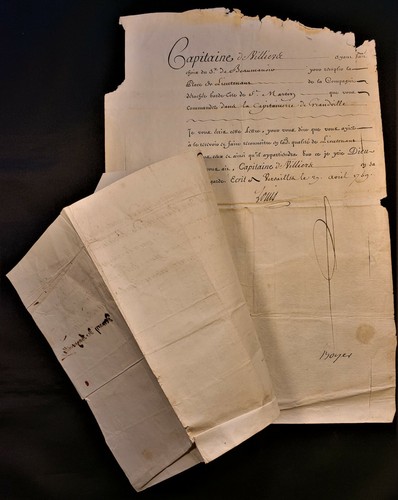 Capitaine de Villiers ayant fait
choix du S.r de Beaumanoir pour remplir la
Place de Lieutenant de la Compagnie
garde-Côte de S.t Martin que vous
Commandez dans la Capitainerie de Granville
Je vous écris cette Lettre, pour vous dire que vous ayiez
à le recevoir et faire reconnoître en lad. qualité de Lieutenant
sera ce ainsi qu'il appartiendra sur ce je prie Dieu
Capitaine de Villiers
garde Ecrit à Versailles le avril
Louis
Boyer